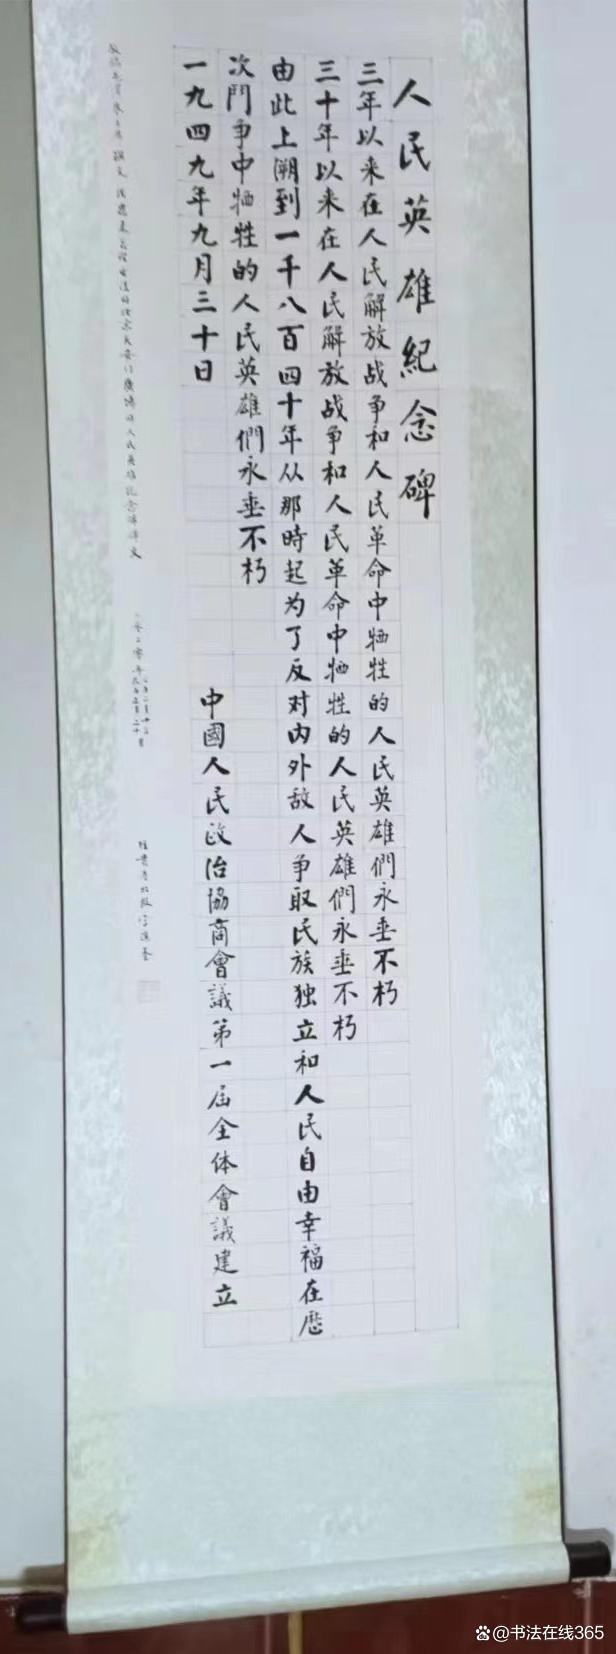 人民英雄紀念碑
三年以来在人民解放战争和人民革命中牺牲的人民英雄們永垂不朽
三十年以来在人民解放战争和人民革命中牺牲的人民英雄們永垂不朽
由此上溯到一千八百四十年从那時起为了反对内外敌人争取民族独立和人民自由幸福在歷
次鬥争中牺牲的人民英雄們永垂不朽
一九四九年九月三十日
中國人民政治協商會議第一届全体會議建立
天安门廣場的人民英雄紀念碑碑文
@书法在线365